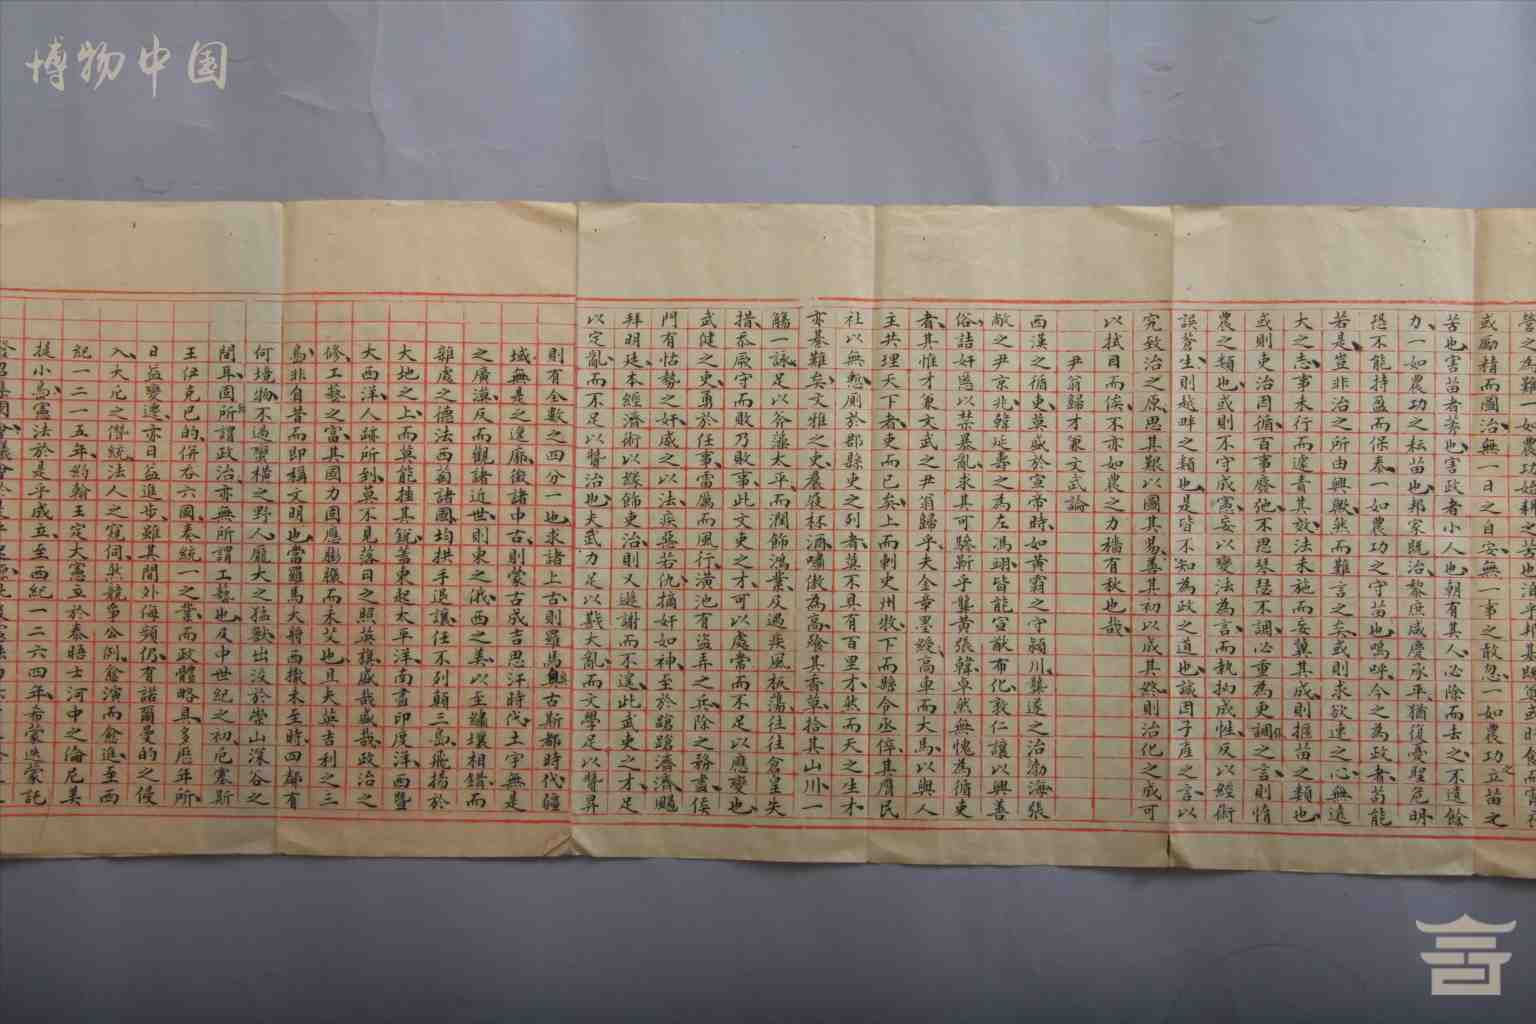 博物中国
或勵精而圖治無一日之自安無一事之敢忽一如農功立苗之
苦也害苗者莠也害政者小人也朝有其人必陰而去之不遺餘
力一如農功之耘苗也邦家既治黎庶咸慶承平猶復憂聖危明
恐不能持盈而保泰一如農功之守苗也嗚呼今之為政者苟能
若是豈非治之所由興歟然而難言之矣或則求欲速之心無遠
大之志事未行而遽責其效法未施而妄冀其成則揠苗之類也
或則吏治因循百事廢弛不思琴瑟不調必重為更調之言則惰
農之類也或則不守成憲妄以變法為言而執拗成性反以經術
誤蒼生則越畔之類也是皆不知為政之道也誠因子產之言以
究致治之原思其艱以圖其易善其初以成其終則治化之成可
以拭目而俟不亦如農之力穡有秋也哉
尹翁歸才兼文武論
西漢之循吏莫盛於宣帝時如黃霸之守潁川龔遂之治渤海張
敞之尹京兆韓延壽之為左馮翊皆能宣猷布化敦仁讓以興善
俗詰奸慝以禁暴亂求其可驂靳乎龔黃張韓卓然無愧為循吏
者其惟才兼文武之尹翁歸乎夫金章墨綬高車而大馬以與人
主共理天下者吏而已矣上而刺史州牧下而縣令丞倅其膺民
社以無慙厠於郡縣吏之列者莫不具有百里才然而天之生才
亦綦難矣文雅之吏養廢杯酒嘯傲為高飱其香草拾其山川一
觴一詠足以爷藻太平而潤飾鴻業及遇疾風板蕩往往倉皇失
措忝厥守而敗乃敗事此文吏之才可以處常而不足以應變也
武健之吏勇於任事雷厲而風行潢池有盜弄之兵除之務盡侯
門有怙勢之奸威之以法疾惡若仇摘奸如神至於蹌蹌濟濟颺
拜明廷本經濟術以緣飾吏治則又遜謝而不遑此武吏之才足
以定亂而不足以贊治也夫武力足以戡大亂而文學足以贊昇
則有全數之四分一也求諸上古則羅馬古斯都時代疆
域無是之遼廓徵諸中古則蒙古成吉思汗時代土宇無是
之廣漠反而觀諸近世則東之俄西之美以至繡壤相錯而
雜處之德法西葡諸國均拱手退讓任不列顛三島飛揚於
大地之上而莫能攖其銳蓋東起太平洋南盡印度洋西暨
大西洋人跡所到莫不見落日之照英旗盛哉盛哉政治之
修工藝之富其國力固應膨脹而未艾也且夫英吉利之三
島非自昔而即稱文明也當羅馬大將西撒未至時四鄰有
何境物不過蠻橫之野人龐大之猛獸出沒於崇山深谷之
間耳固所謂政治亦無所謂工藝也及中世紀之初厄塞斯
王伊克巴的併吞六國奏統一之業而政體略具多歷年所
日益變遷亦日益進步雖其間外侮頻仍有諾爾曼的之侵
入大尼之僭統法人之窺伺然競爭公例愈演而愈進至西
紀一二一五年約翰王定大憲立於泰晤士河中之倫尼美
提小島憲法於是乎成立至西紀一二六四年希蒙迭蒙託